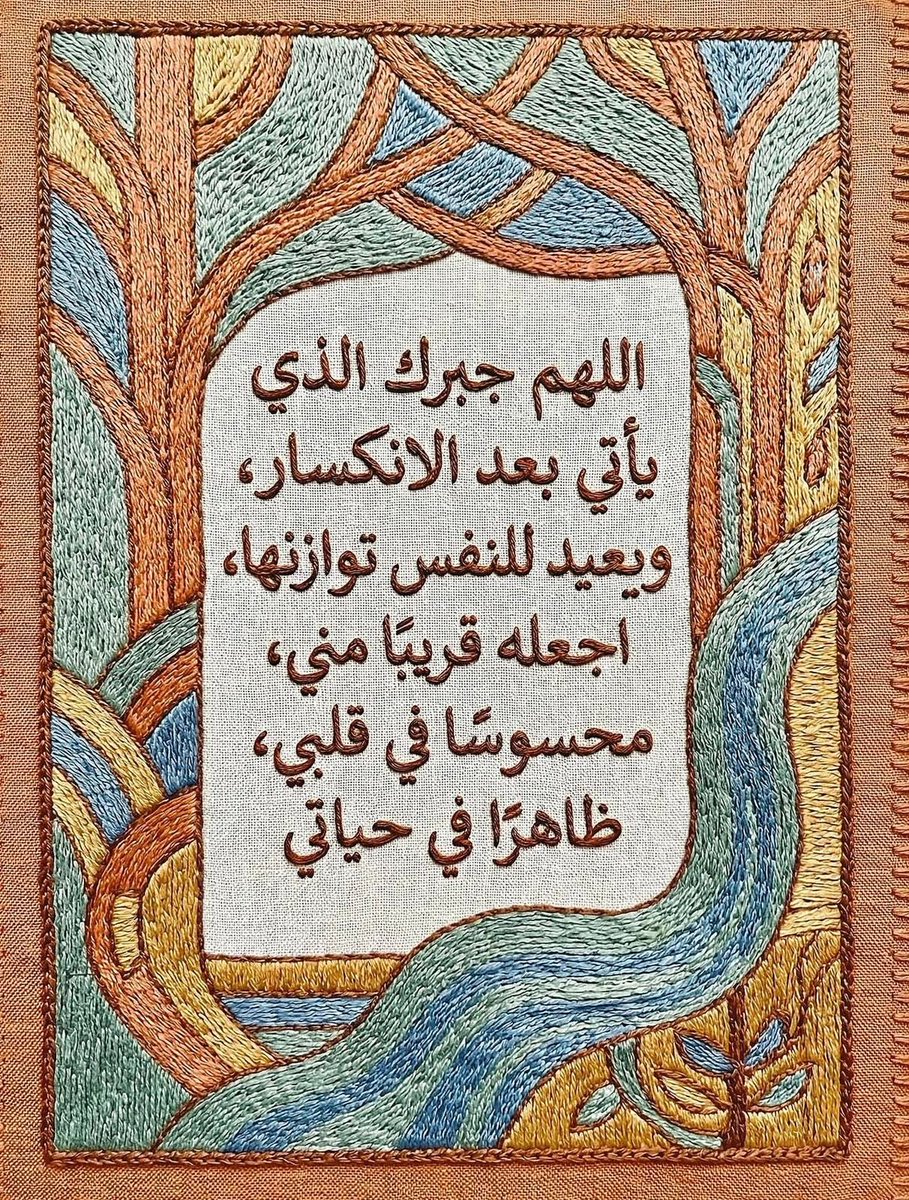 اللهم جبرك الذي
يأتي بعد الانكسار،
ويعيد للنفس توازنها،
اجعله قريبًا مني،
محسوسًا في قلبي،
ظاهرًا في حياتي